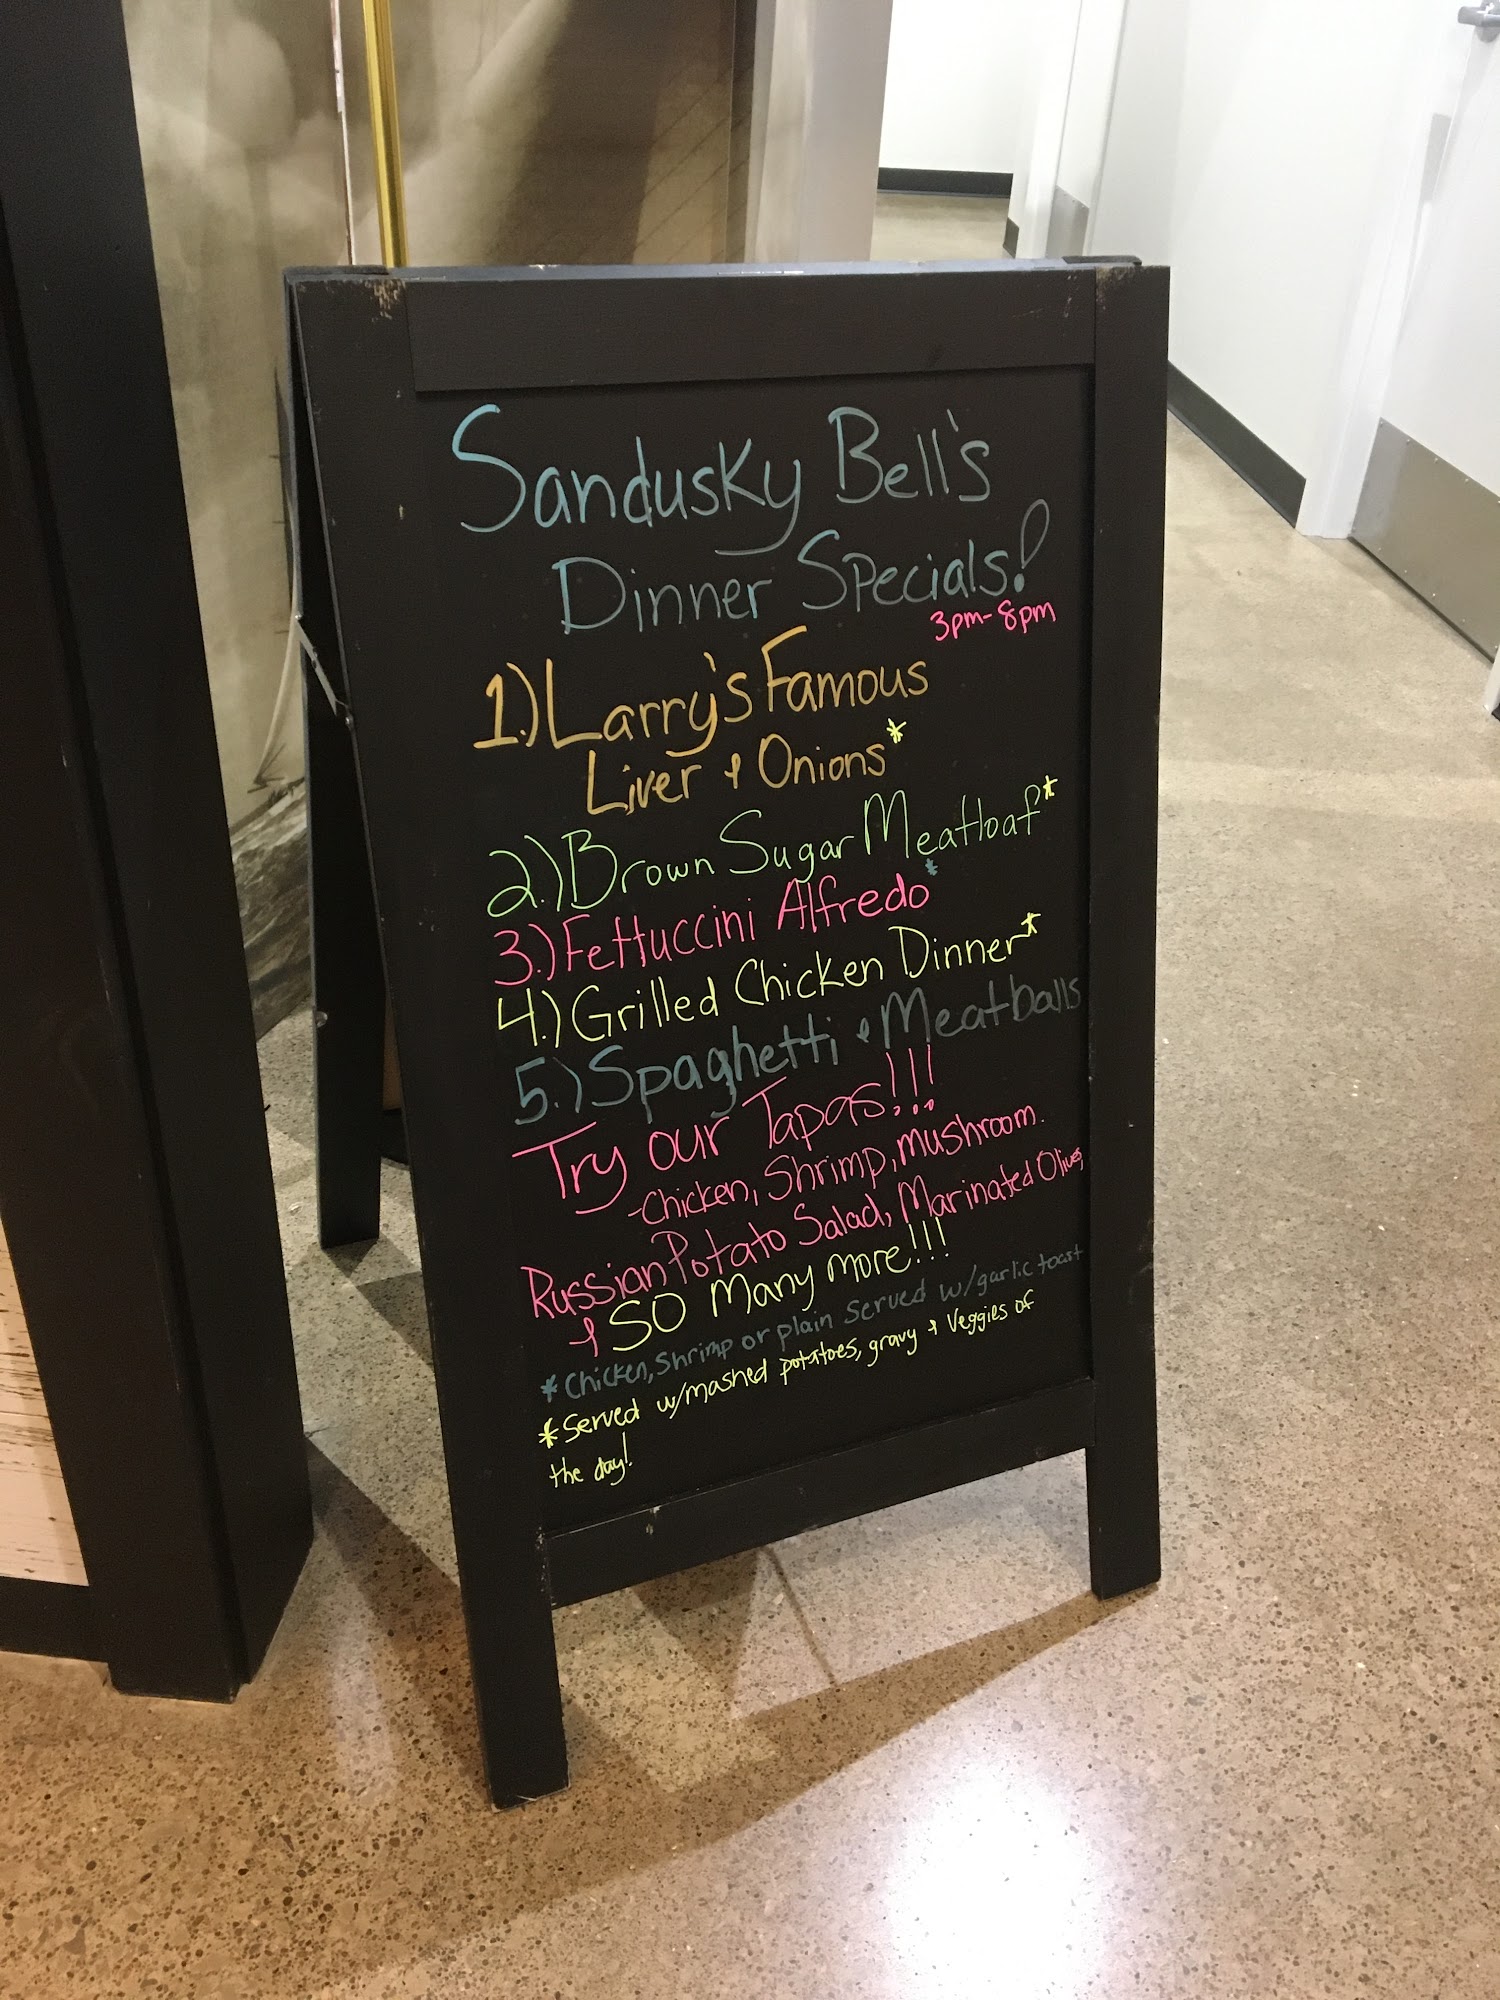 Sandusky Bell's
Dinner Specials!
3pm-8pm
1.) Larry's Famous
Liver & Onions*
2.) Brown Sugar Meatloaf*
3.) Fettuccini Alfredo*
4.) Grilled Chicken Dinner*
5.) Spaghetti & Meatballs
Try our Tapas!!!
-Chicken, Shrimp, mushroom.
Russian Potato Salad, Marinated Olives,
& SO Many more!!!
*Chicken, Shrimp or plain served w/garlic toast
*Served w/mashed potatoes, gravy & Veggies of
the day!